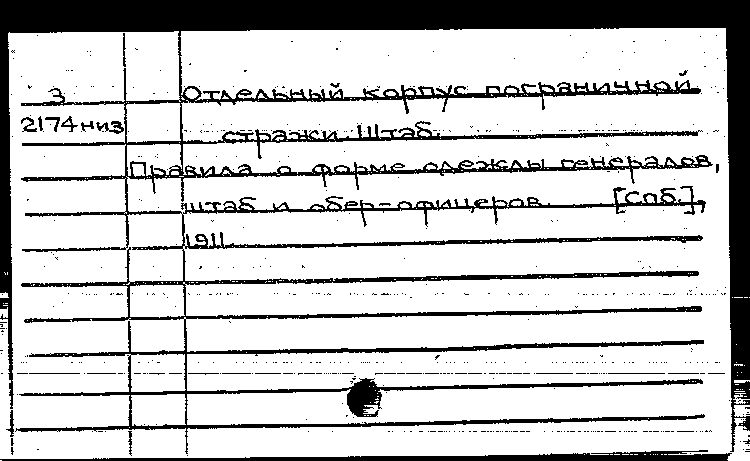 З Отдельный корпус пограничной
2174 низ стражи. Штаб.
Правила о форме одежды генералов,
штаб и обер-офицеров. [Спб.],
1911.